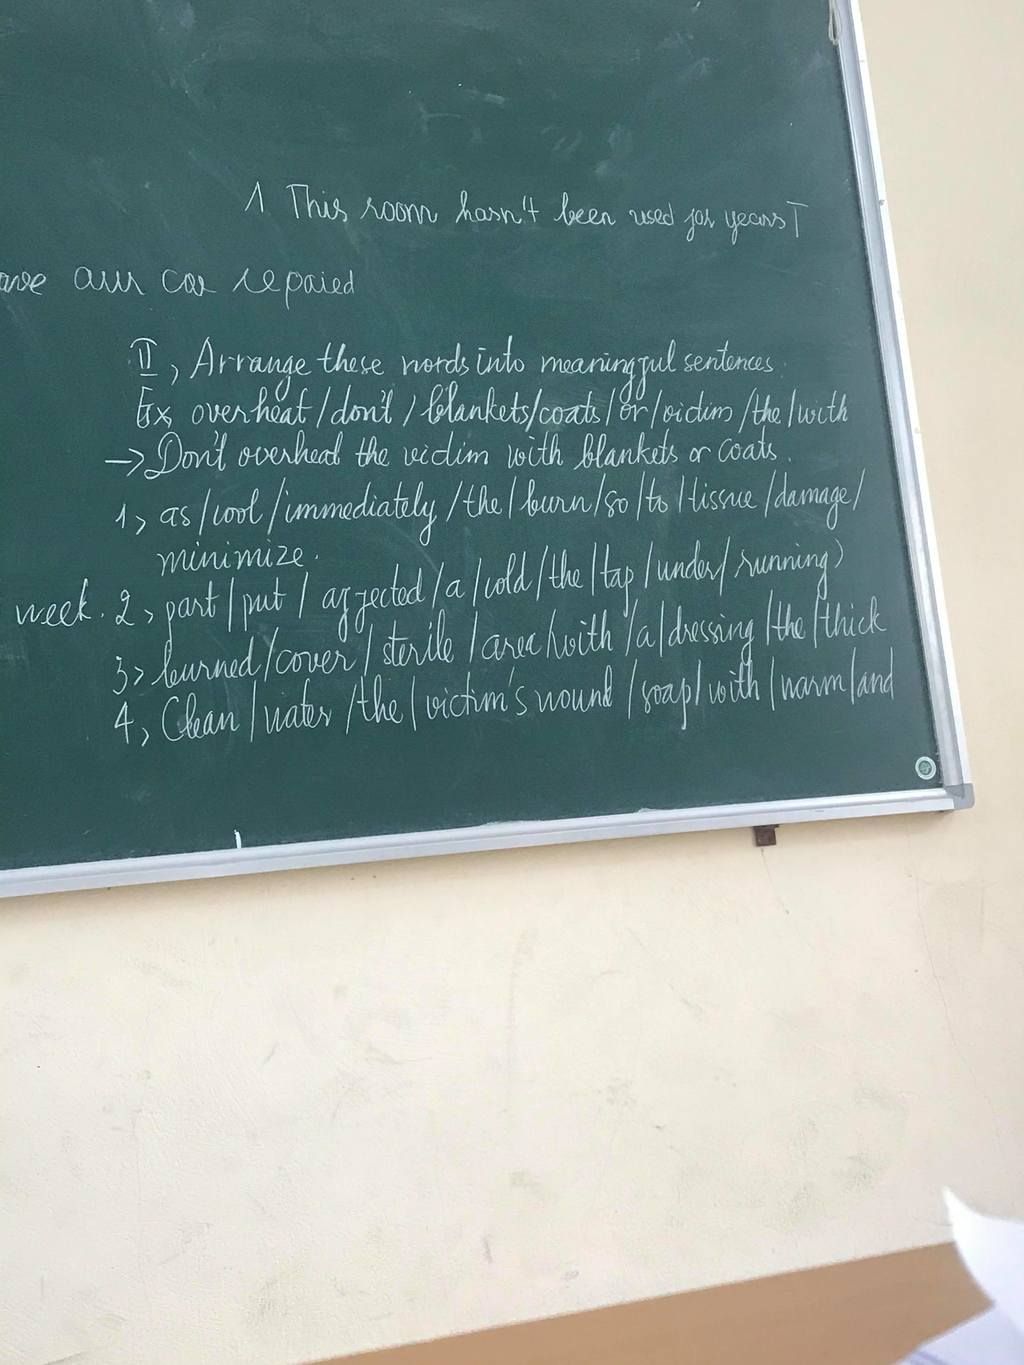 1 This room hasn't been used for years T
our car repaied
II, Arrange these words into meaningful sentences.
Ex overheat/don't/blankets/coats/or/victim/the/with
→ Don't overheat the victim with blankets or coats.
1, as/cool/immediately/the/burn/so/to/tissue/damage/
minimize.
week. 2, part/put/affected/a/cold/the/tap/under/running)
3> burned/cover/sterile/area/with/a/dressing/the/thick
4, Clean/water/the/victim's wound/soap/with/warm/and